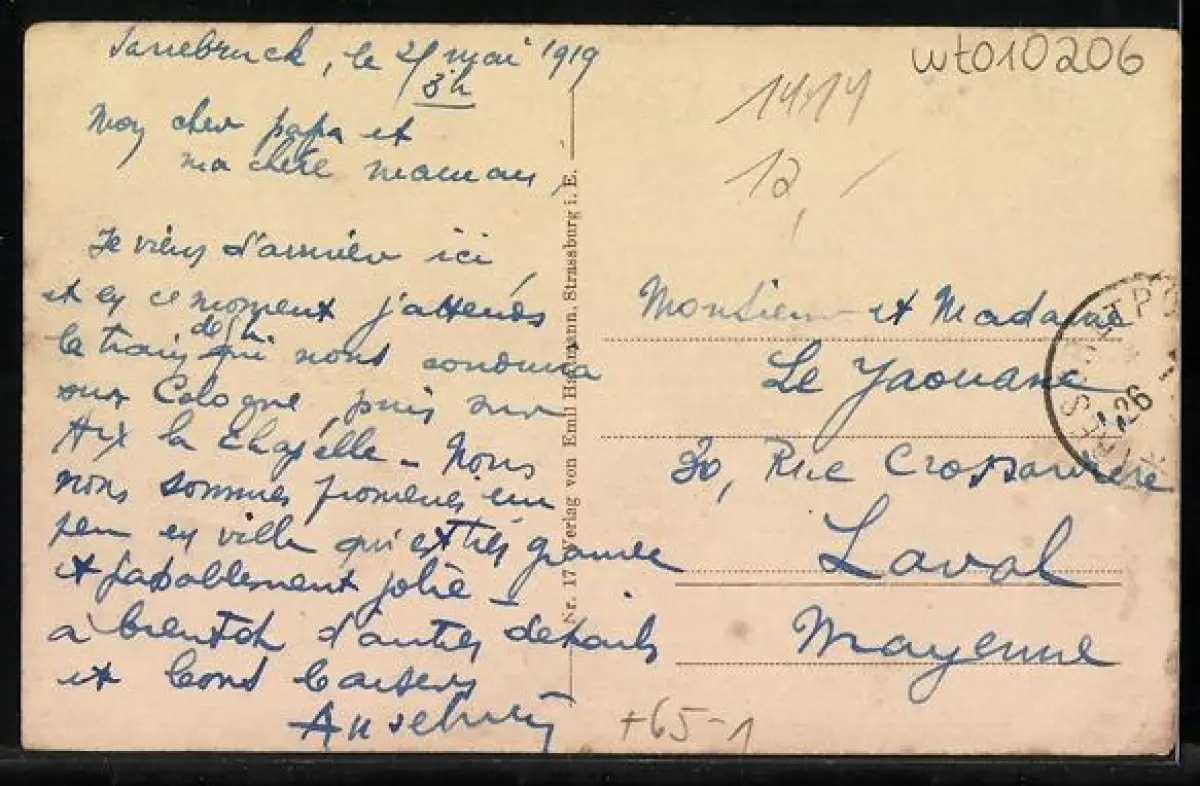 Sarrebruck, le 25 mai 1919
8h
Mon cher papa et
ma chère maman,
Je viens d'arriver ici,
et en ce moment j'attends
le train de 9h qui nous conduira
sur Cologne, puis sur
Aix la Chapelle - Nous
nous sommes promenés un
peu en ville qui est très grande
et passablement jolie -
à bientôt d'autres détails
et bons baisers
Nr. 17 Verlag von Emil Hartmann, Strassburg i. E.
wt010206
1414
12,-
Monsieur et Madame
Le Yaouanc
30, Rue Crossardière
Laval
Mayenne
+65-1
TRESOR ET POSTES
26